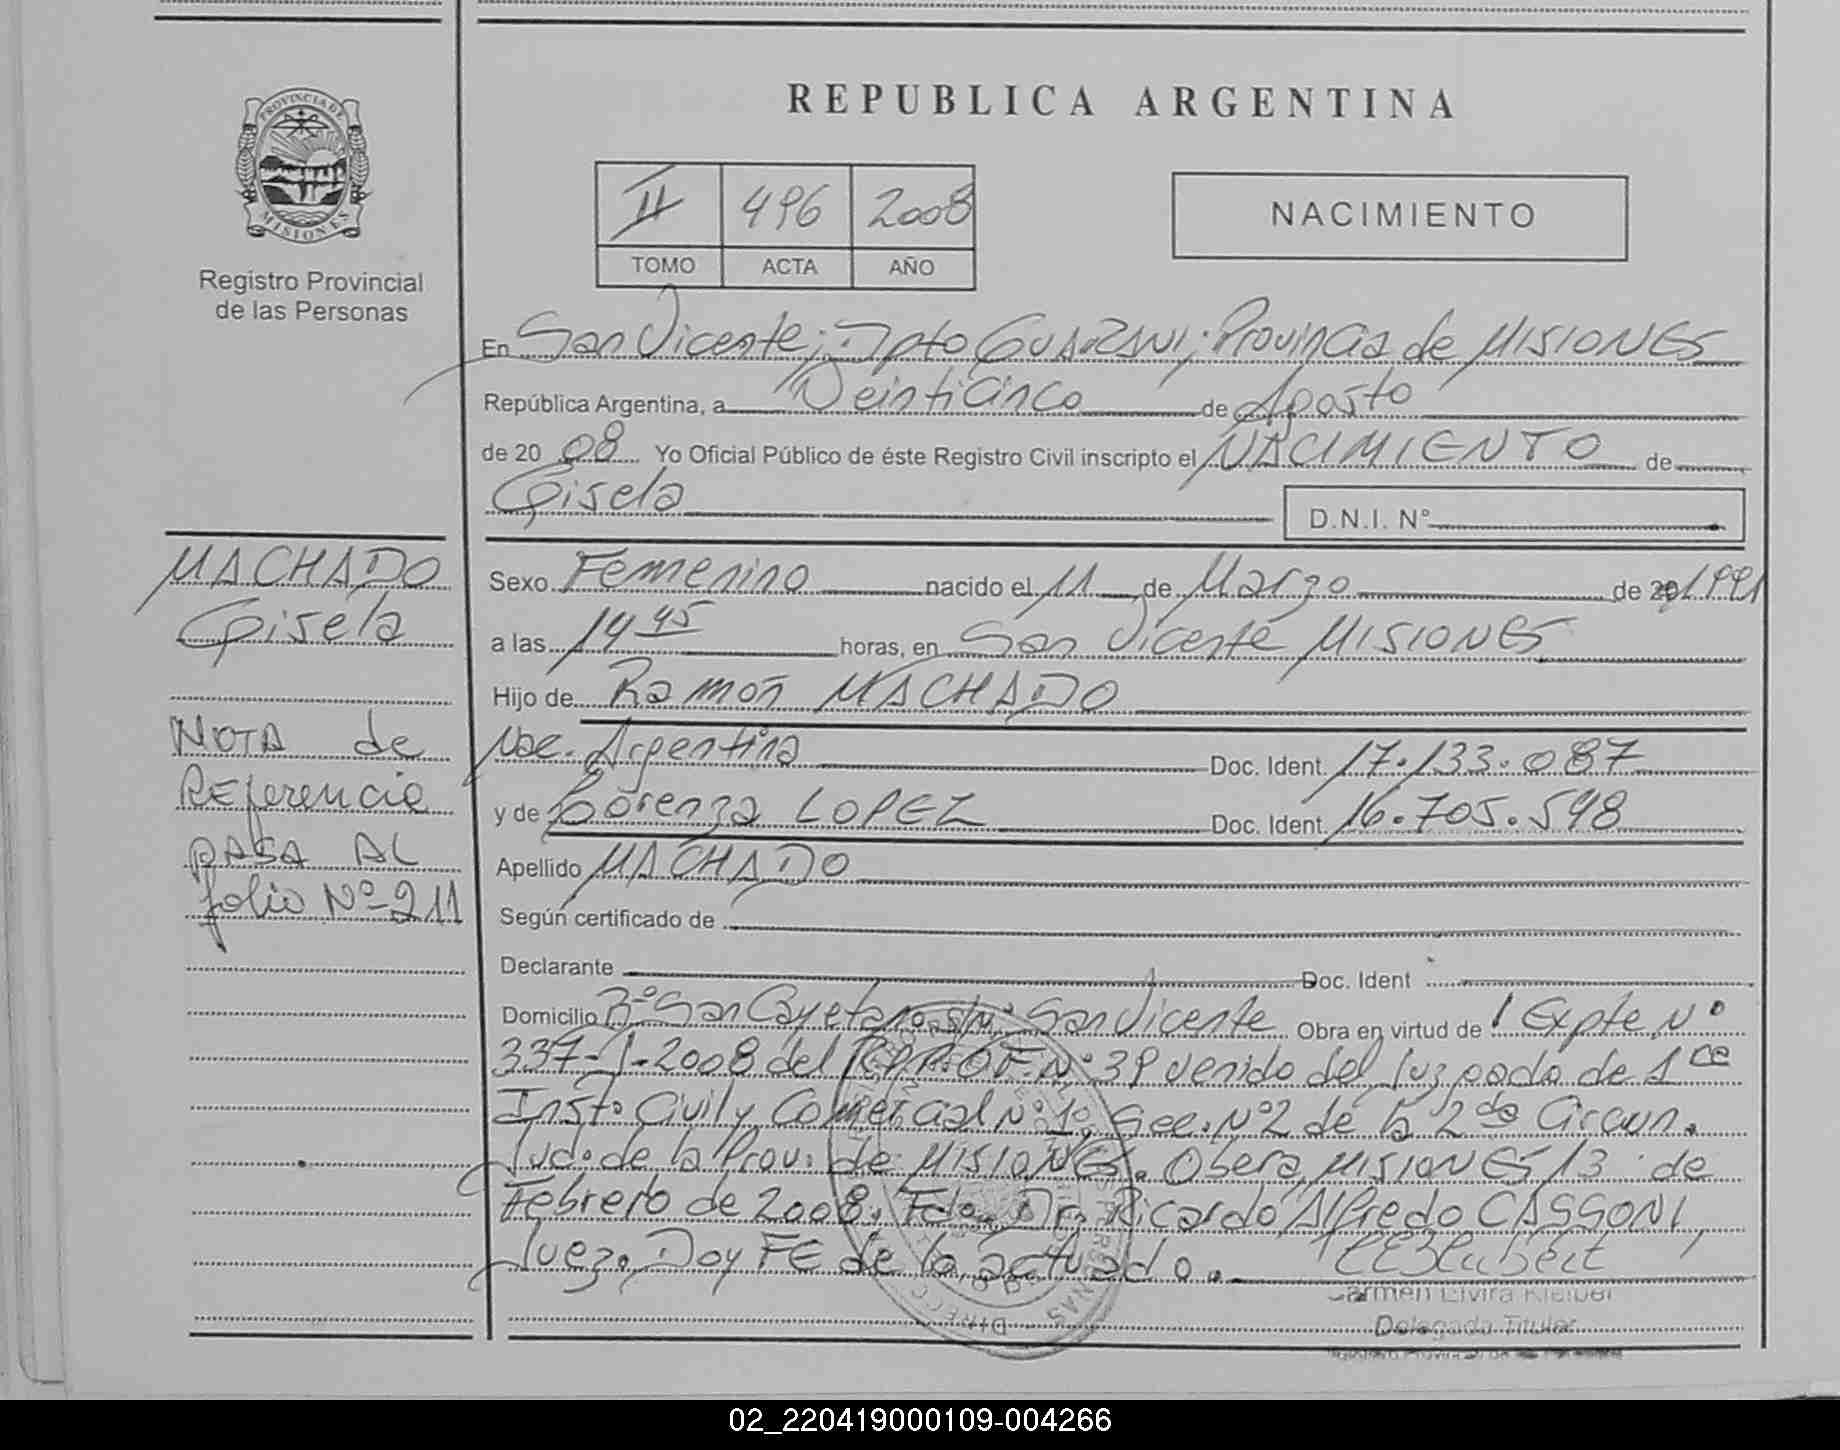 REPUBLICA ARGENTINA
PROVINCIA DE
MISIONES
Registro Provincial
de las Personas
II 496 2008
TOMO ACTA AÑO
NACIMIENTO
En San Vicente; Dpto GUARANI; Provincia de MISIONES
República Argentina, a Veinticinco de Agosto
de 20 08 Yo Oficial Público de éste Registro Civil inscripto el NACIMIENTO de
Gisela
D.N.I. Nº
MACHADO
Gisela
NOTA de
REferencia
PASA AL
folio Nº 211
Sexo Femenino nacido el 11 de Marzo de 20 1991
a las 14 45 horas, en San Vicente MISIONES
Hijo de Ramón MACHADO
Nac. Argentina Doc. Ident. 17.133.087
y de Lorenza LOPEZ Doc. Ident. 16.705.598
Apellido MACHADO
Según certificado de
Declarante Doc. Ident
Domicilio Bº San Cayetano San Vicente Obra en virtud de Expte Nº
337-J-2008 del venido del Juzgado de 1
Inst. Civil y Comercial Nº 1, Sec. Nº 2 de la 2da Circun.
Jud. de la Prov. de MISIONES. Obera, MISIONES 13 de
Febrero de 2008. Fdo. Dr. Ricardo Alfredo CASSONI,
Juez. Doy FE de lo actuado.
Carmen Elvira Kleiber
Delegada Titular
02_220419000109-004266